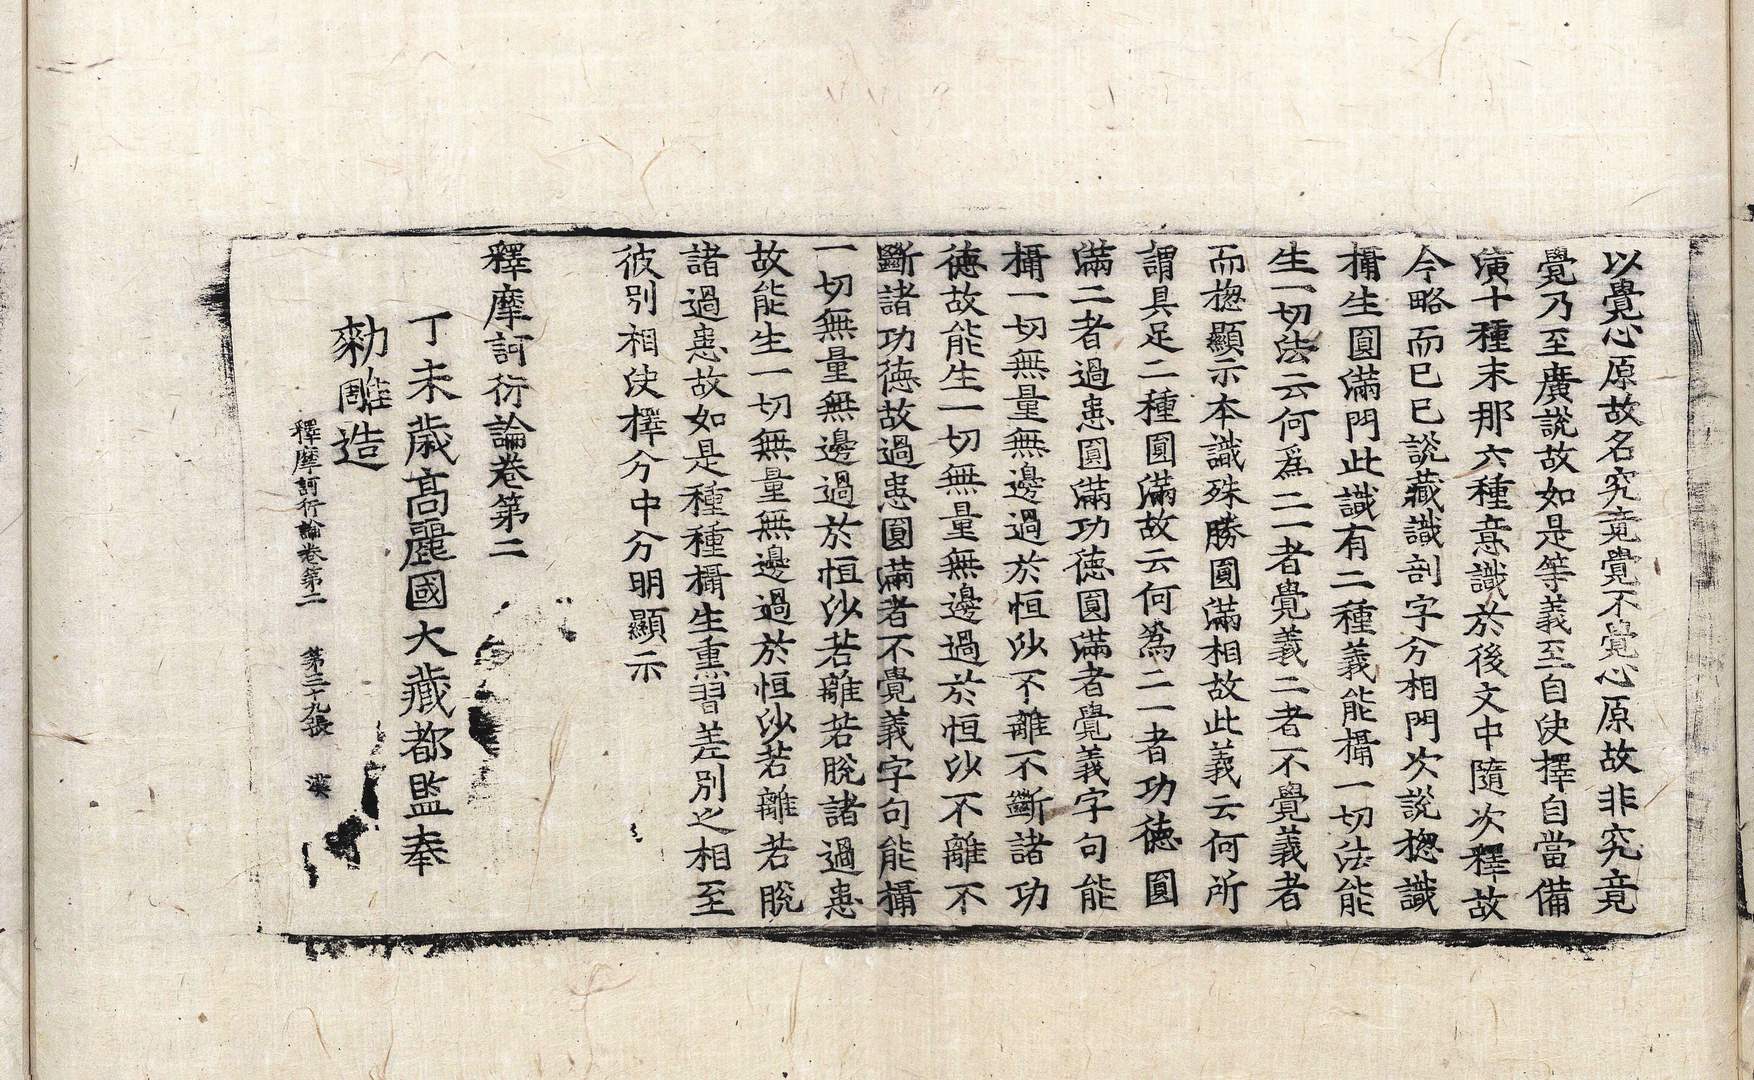 以覺心原故名究竟覺不覺心原故非究竟
覺乃至廣說故如是等義至自決擇自當備
演十種末那六種意識於後文中隨次釋故
今略而已已說藏識剖字分相門次說揔識
攝生圓滿門此識有二種義能攝一切法能
生一切法云何爲二一者覺義二者不覺義者
而揔顯示本識殊勝圓滿相故此義云何所
謂具足二種圓滿故云何爲二一者功德圓
滿二者過患圓滿功德圓滿者覺義字句能
攝一切無量無邊過於恒沙不離不斷諸功
德故能生一切無量無邊過於恒沙不離不
斷諸功德故過患圓滿者不覺義字句能攝
一切無量無邊過於恒沙若離若脫諸過患
故能生一切無量無邊過於恒沙若離若脫
諸過患故如是種種攝生熏習差別之相至
彼別相決擇分中分明顯示
釋摩訶衍論卷第二
丁未歲高麗國大藏都監奉
勑雕造
釋摩訶衍論卷第二 第三十九張 漠